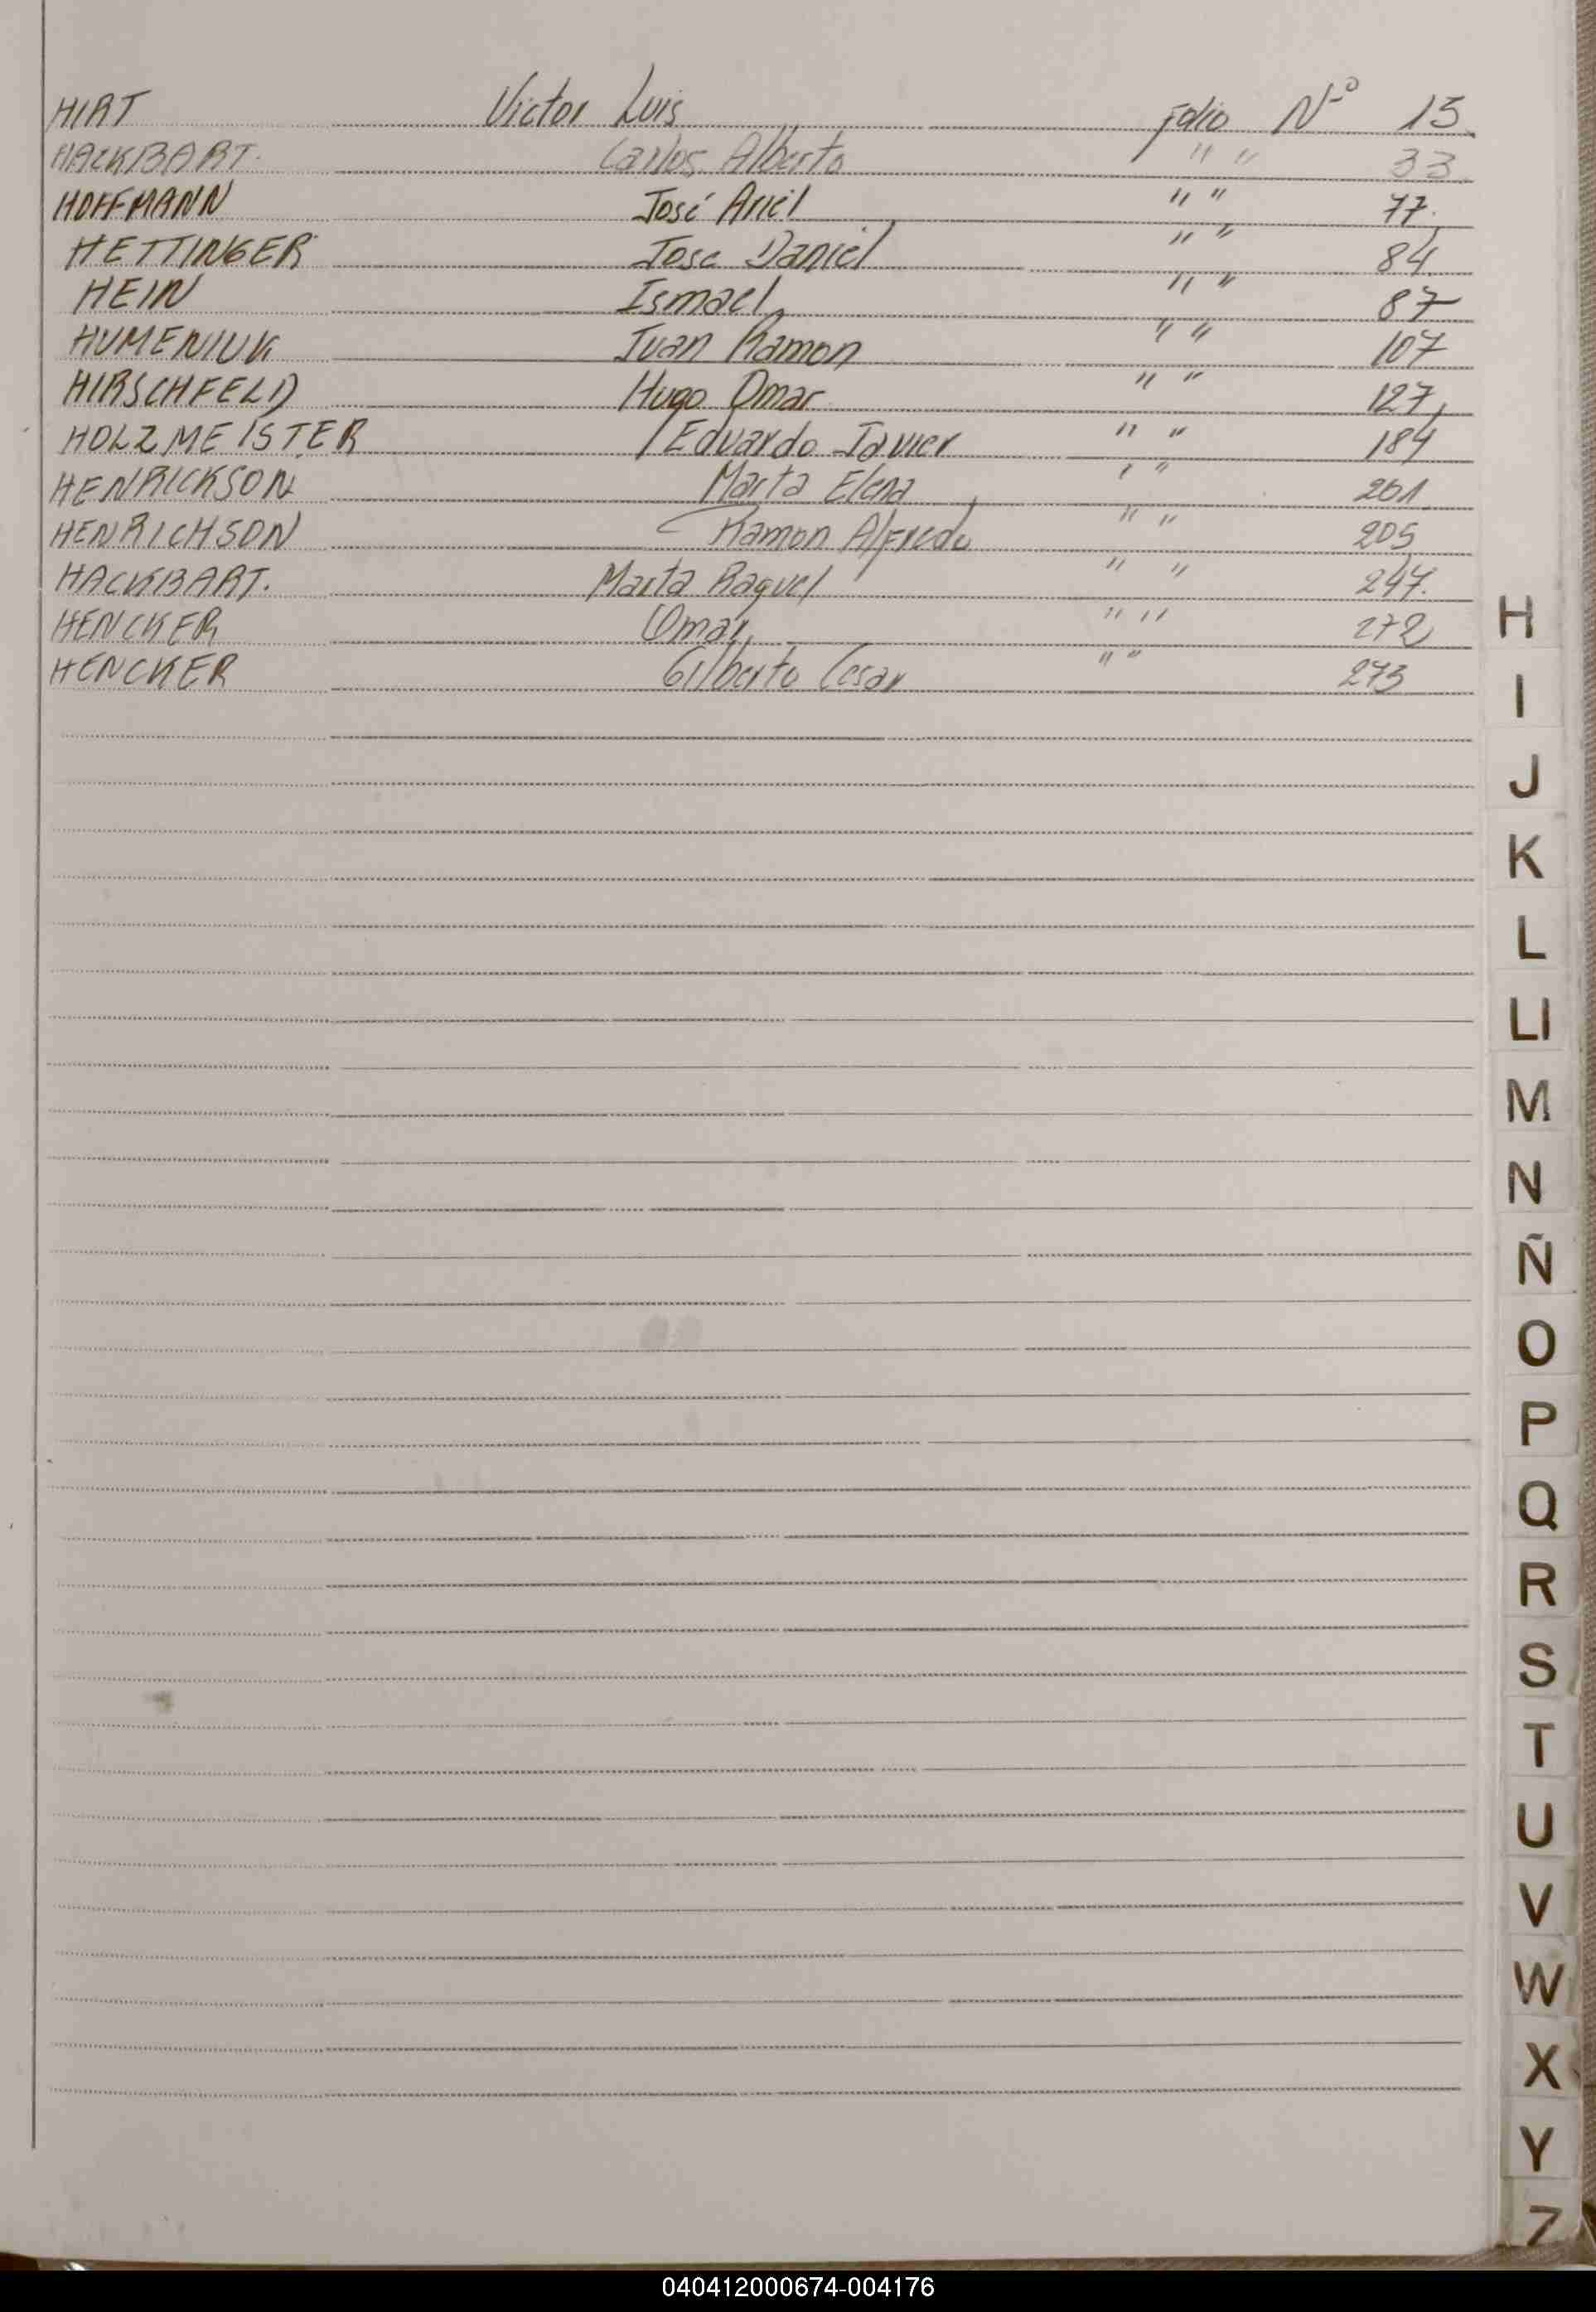 HIRT Victor Luis Folio Nº 15
HACKBART. Carlos Alberto " " 33
HOFFMANN José Ariel " " 77.
HETTINGER Jose Daniel " " 84.
HEIN Ismael " " 87
HUMENIUK Juan Ramon " " 107
HIRSCHFELD Hugo Omar " " 127
HOLZMEISTER Eduardo Javier " " 184
HENRICKSON Marta Elena " " 201
HENRICHSON Ramon Alfredo " " 205
HACKBART. Marta Raquel " " 247.
HENCKER Omar " " 272
HENCKER Gilberto Cesar " " 273
H
I
J
K
L
Ll
M
N
Ñ
O
P
Q
R
S
T
U
V
W
X
Y
Z
040412000674-004176